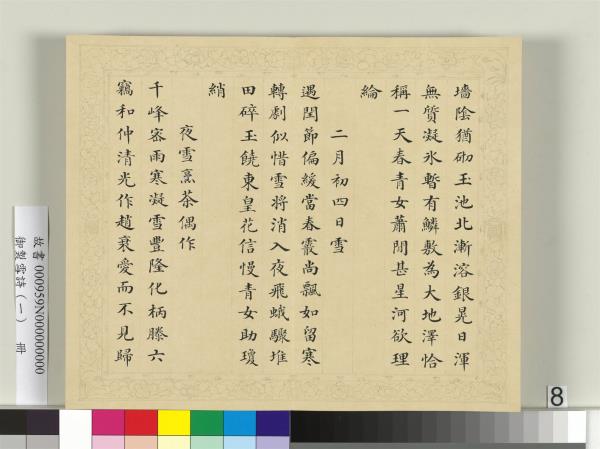 墻陰猶砌玉池北漸溶銀晃日渾
無質凝氷暫有鱗敷為大地澤恰
稱一天春青女蕭閒甚星河欲理
綸
二月初四日雪
遇閏節偏緩當春霰尚飄如留寒
轉劇似惜雪將消入夜飛蛾驟堆
田碎玉饒東皇花信慢青女助瓊
綃
夜雪烹茶偶作
千峰密雨寒凝雪豐隆化柄滕六
竊和仲清光作趙衰愛而不見歸
故書 000959N000000000
御製雪詩（一） 冊
8